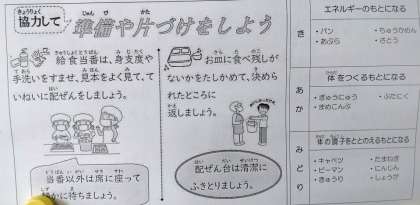 協力して
準備や片づけをしよう
給食当番は、身支度や
手洗いをすませ、見本をよく見て、て
いねいに配ぜんをしましょう。
当番以外は席に座って
静かに待ちましょう。
お皿に食べ残しが
ないかをたしかめて、決めら
れたところに
返しましょう。
配ぜん台は清潔に
ふきとりましょう。
エネルギーのもとになる
き
・パン ・ちゅうかめん
・あぶら ・さとう
体をつくるもとになる
あか
・ぎゅうにゅう ・ぶたにく
・まめこんぶ
体の調子をととのえるもとになる
みどり
・キャベツ ・たまねぎ
・ピーマン ・にんじん
・きゅうり ・しょうが